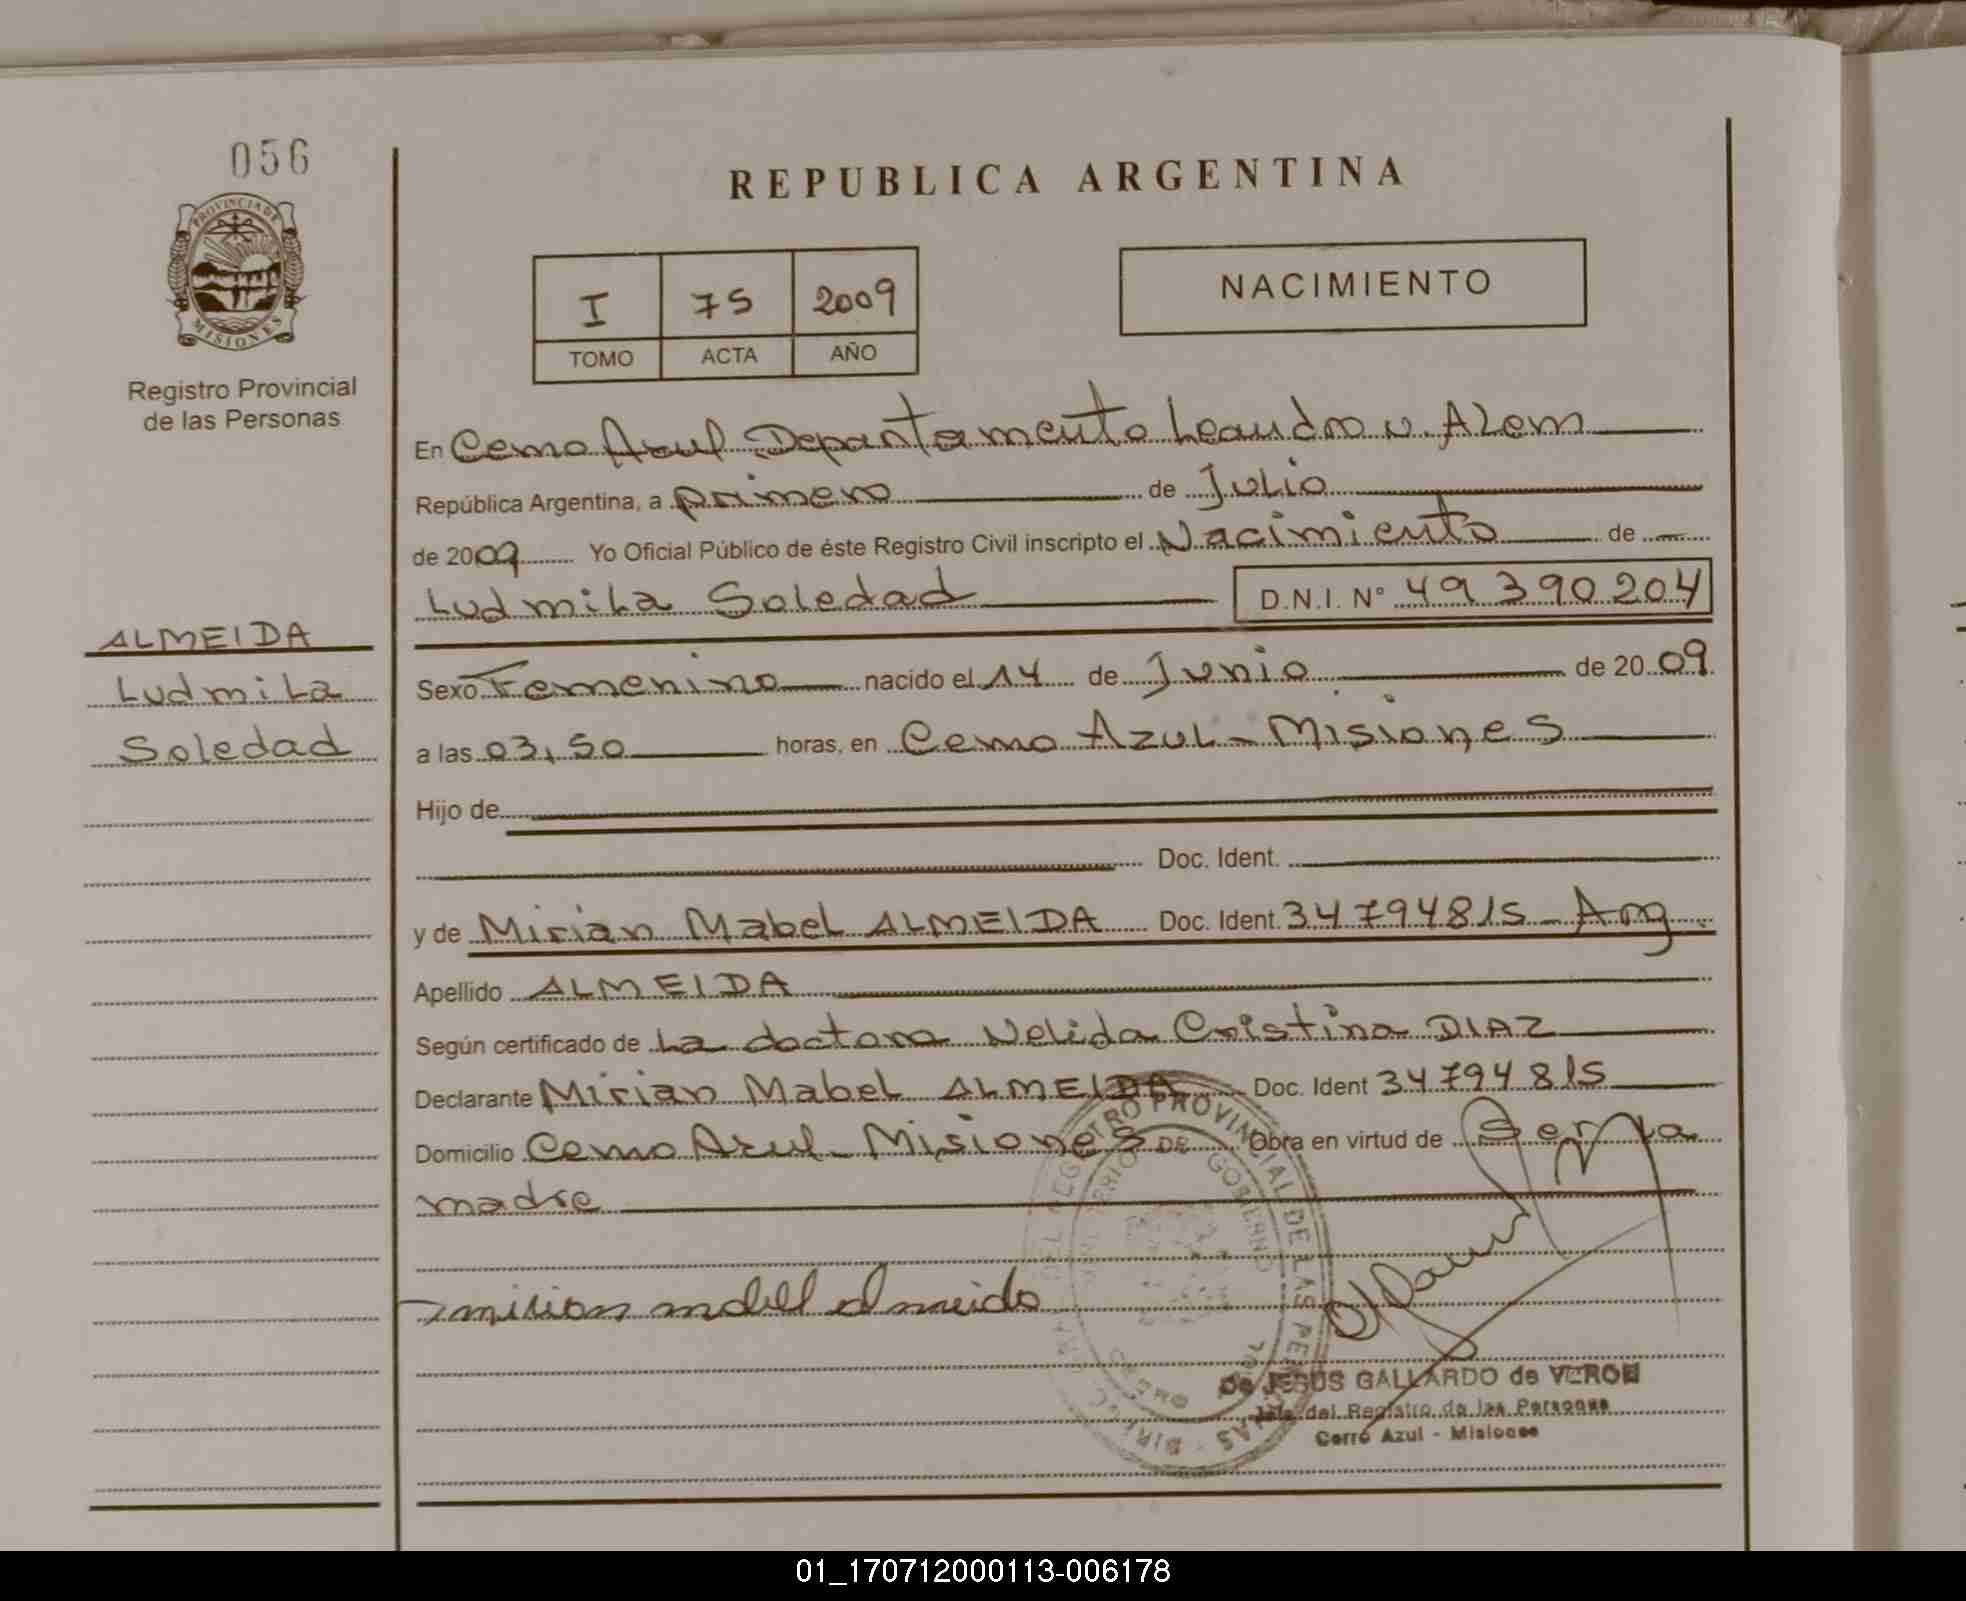 056
PROVINCIA DE
MISIONES
Registro Provincial
de las Personas
ALMEIDA
Ludmila
Soledad
REPUBLICA ARGENTINA
I 75 2009
TOMO ACTA AÑO
NACIMIENTO
En Cerro Azul Departamento Leandro N. Alem
República Argentina, a primero de Julio
de 2009 Yo Oficial Público de éste Registro Civil inscripto el Nacimiento de
Ludmila Soledad D.N.I. N° 49390204
Sexo Femenino nacido el 14 de Junio de 2009
a las 03,50 horas, en Cerro Azul - Misiones
Hijo de
Doc. Ident.
y de Mirian Mabel ALMEIDA Doc. Ident. 34794815 - Arg
Apellido ALMEIDA
Según certificado de La doctora Nelida Cristina DIAZ
Declarante Mirian Mabel ALMEIDA Doc. Ident 34794815
Domicilio Cerro Azul - Misiones Obra en virtud de Ser la
madre
mirian mabel almeida
REGISTRO PROVINCIAL DE LAS PERSONAS
DE GOBIERNO
JESUS GALLARDO de VERON
Jefe del Registro de las Personas
Cerro Azul - Misiones
01_170712000113-006178